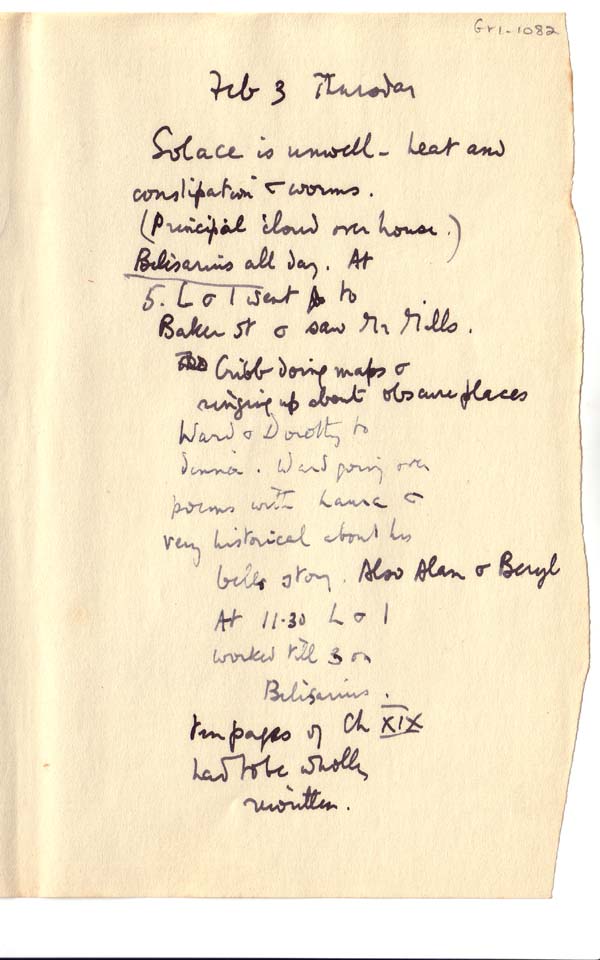 Gr1-1082
Feb 3 Thursday
Solace is unwell - heat and
constipation & worms.
(Principal cloud over house.)
Belisarius all day. At
5. L & I went to
Baker St & saw Mr Mills.
Cribb doing maps &
ringing up about obscure places
Ward & Dorothy to
dinner. Ward going over
poems with Laura &
very historical about his
bells story. Also Alan & Beryl
At 11.30 L & I
worked till 3 on
Belisarius.
ten pages of Ch XIX
had to be wholly
rewritten.